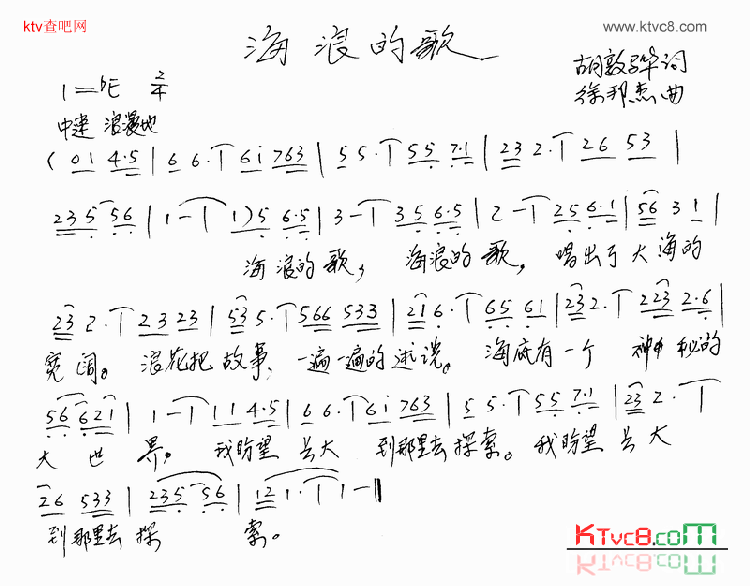 ktv查吧网
www.ktvc8.com
海浪的歌
1=bE 2/4
胡敦骅词
徐邦杰曲
中速 浪漫地
(01 4·5 | 66· 6i 763 | 55· 55 7·1 | 23 2· 26 53 |
235 56 | 1- 1)5 6·5 | 3- 35 6·5 | 2- 25 6·1 | 56 3 1 |
海浪的歌, 海浪的歌, 唱出了大海的
23 2· 23 23 | 53 5· 566 533 | 21 6· 65 61 | 23 2· 223 2·6 |
宽阔。 浪花把故事, 一遍一遍的述说。 海底有一个 神秘的
56 621 | 1- 11 4·5 | 66· 6i 763 | 55· 55 7·1 | 23 2·
大世界, 我盼望长大 到那里去探索。 我盼望长大
26 533 | 235 56 | 12 1· 1- ‖
到那里去探 索。
KTvc8.com